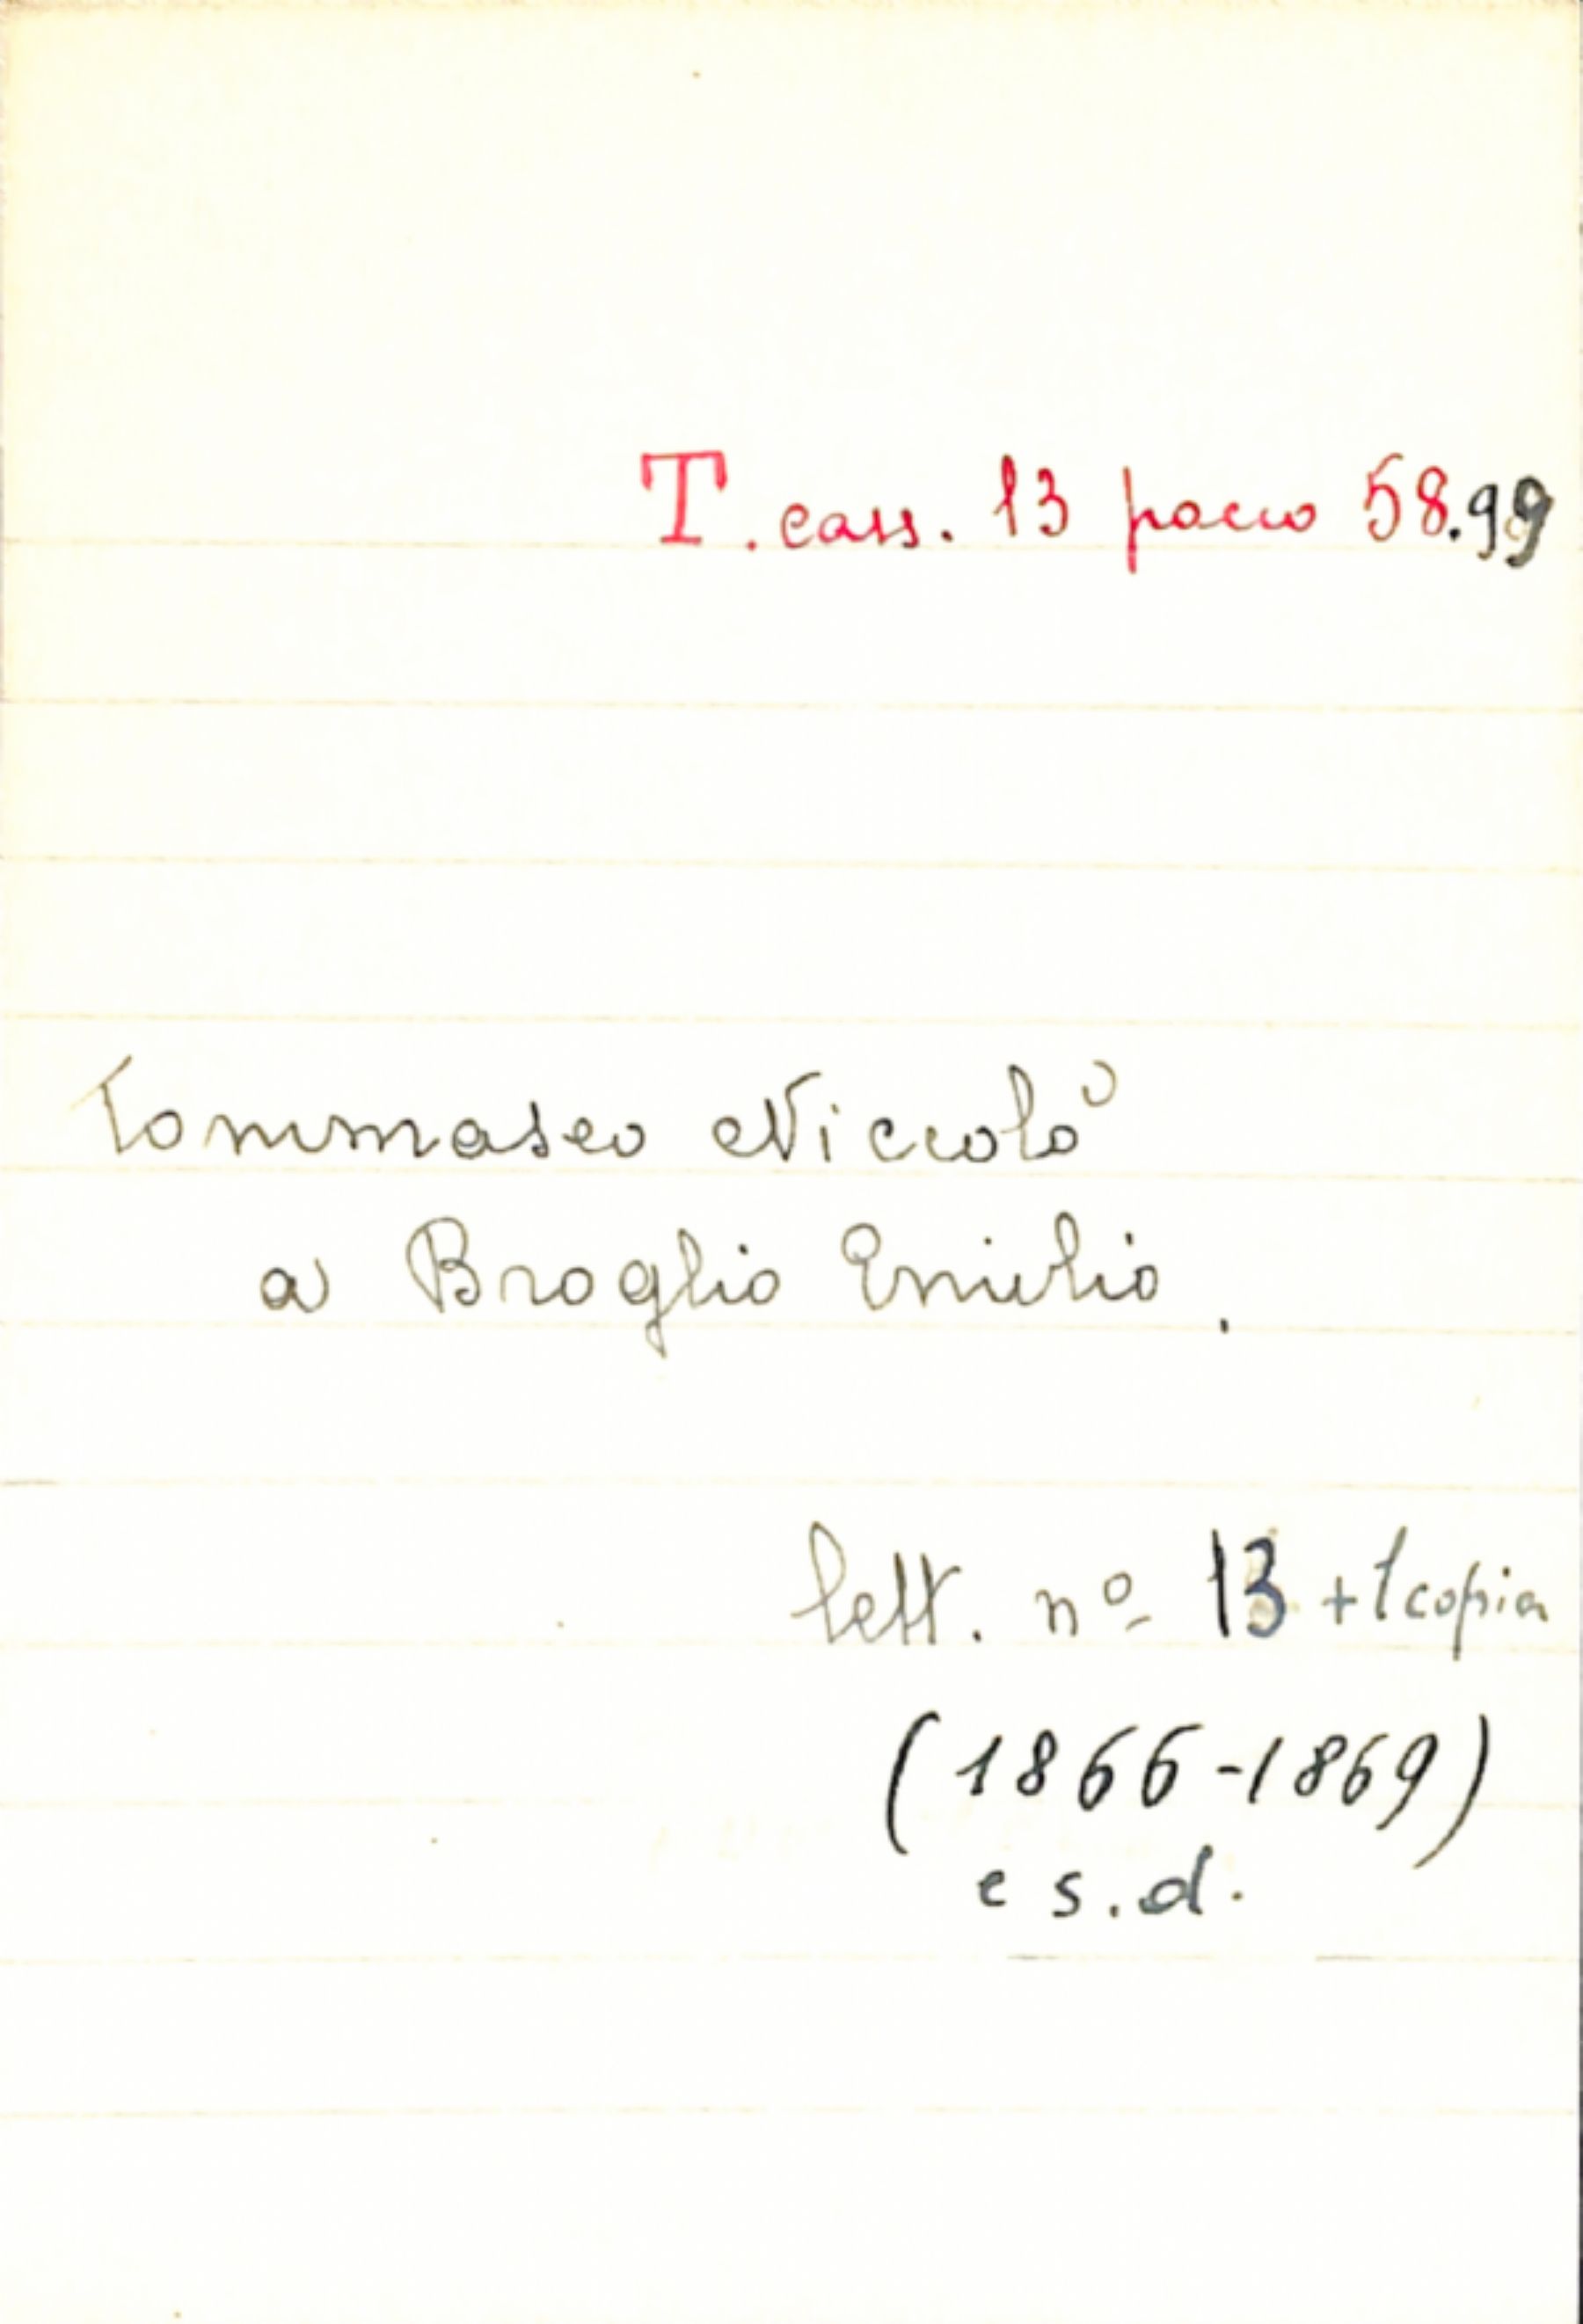 T. cass. 13 pacco 58.99
Tommaseo Niccolò
a Broglio Emilio.
lett. nº 13 + 1 copia
(1866-1869)
e s.d.